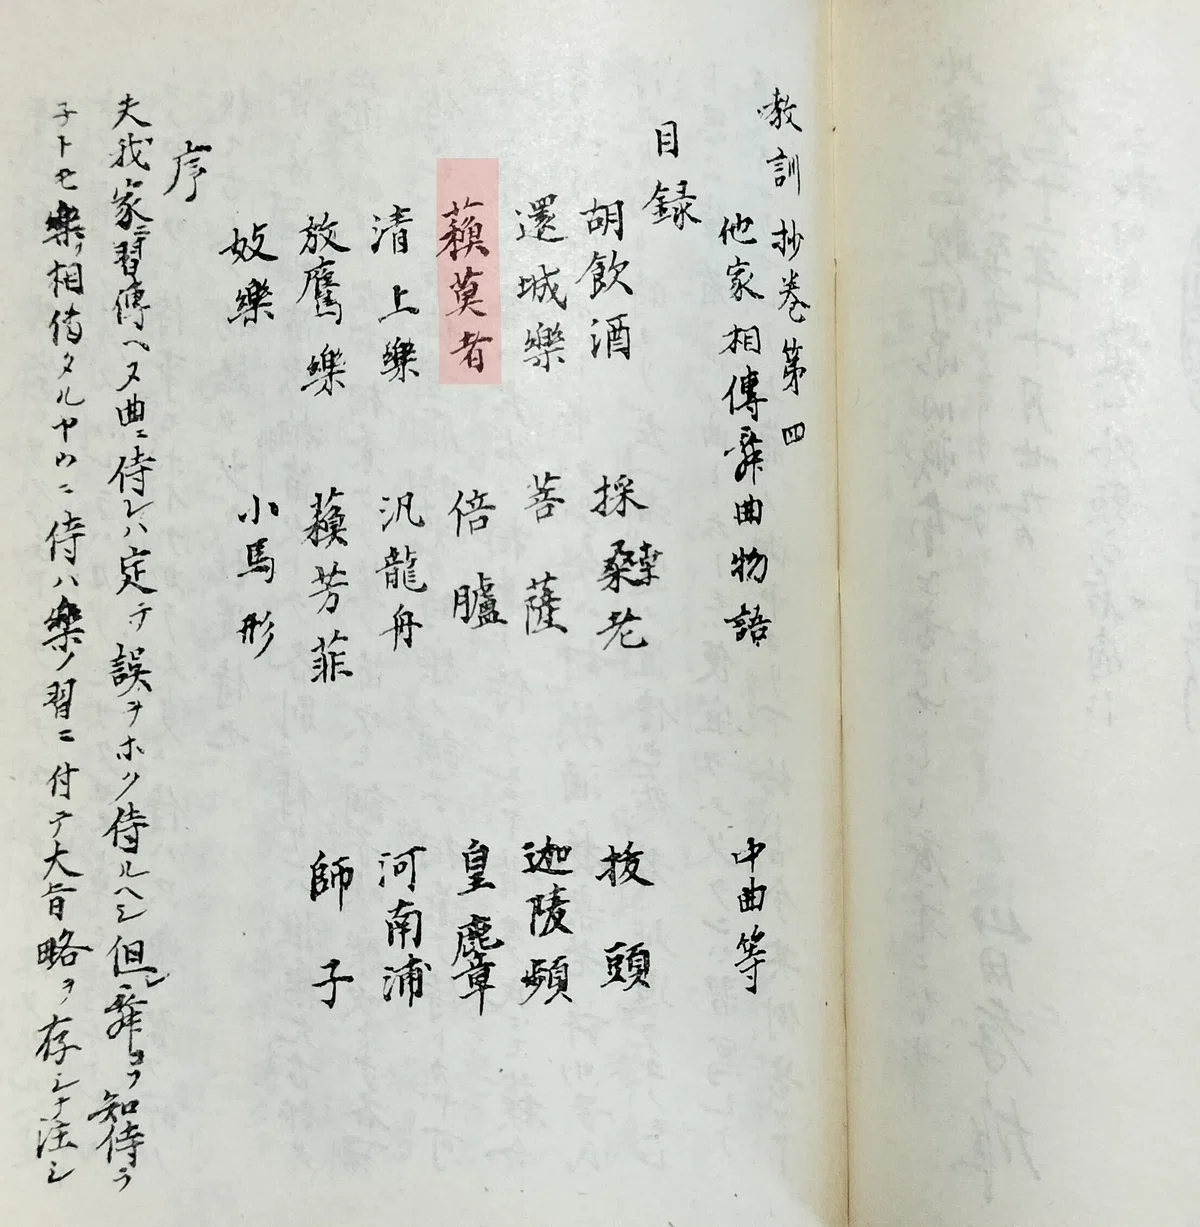 教訓抄巻第四
他家相傳舞曲物語 中曲等
目録
胡飲酒 採桑老 抜頭
還城樂 菩薩 迦陵頻
蘓莫者 倍臚 皇麞
清上樂 汎龍舟 河南浦
放鷹樂 蘓芳菲 師子
妓樂 小馬形
序
夫我家ニ習傳ヘヌ曲ニ侍レハ定テ誤ヲホク侍ルヘシ但シ舞コソ知侍ラ
子トモ樂ハ相傳タルヤウニ侍ハ樂ノ習ニ付テ大旨略ヲ存シナ注シ